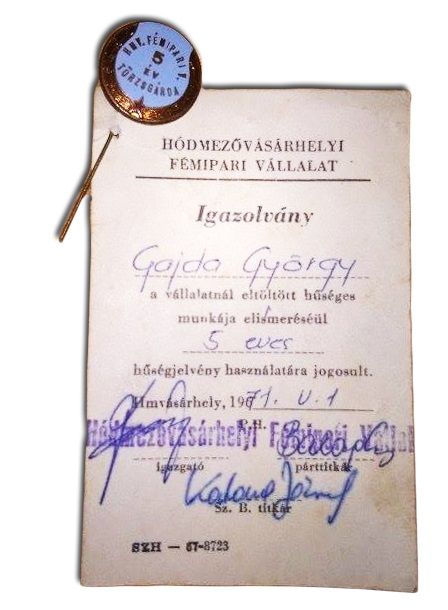 HMV. FÉMIPARI V.
5
ÉV
TÖRZSGÁRDA
HÓDMEZŐVÁSÁRHELYI
FÉMIPARI VÁLLALAT
Igazolvány
Gajda György
a vállalatnál eltöltött hűséges
munkája elismeréséül
5 éves
hűségjelvény használatára jogosult.
Hmvásárhely, 1971. V. 1
P.H.
Hódmezővásárhelyi Fémipari Vállalat
igazgató párttitkár
Sz. B. titkár
SZH — 67-8723